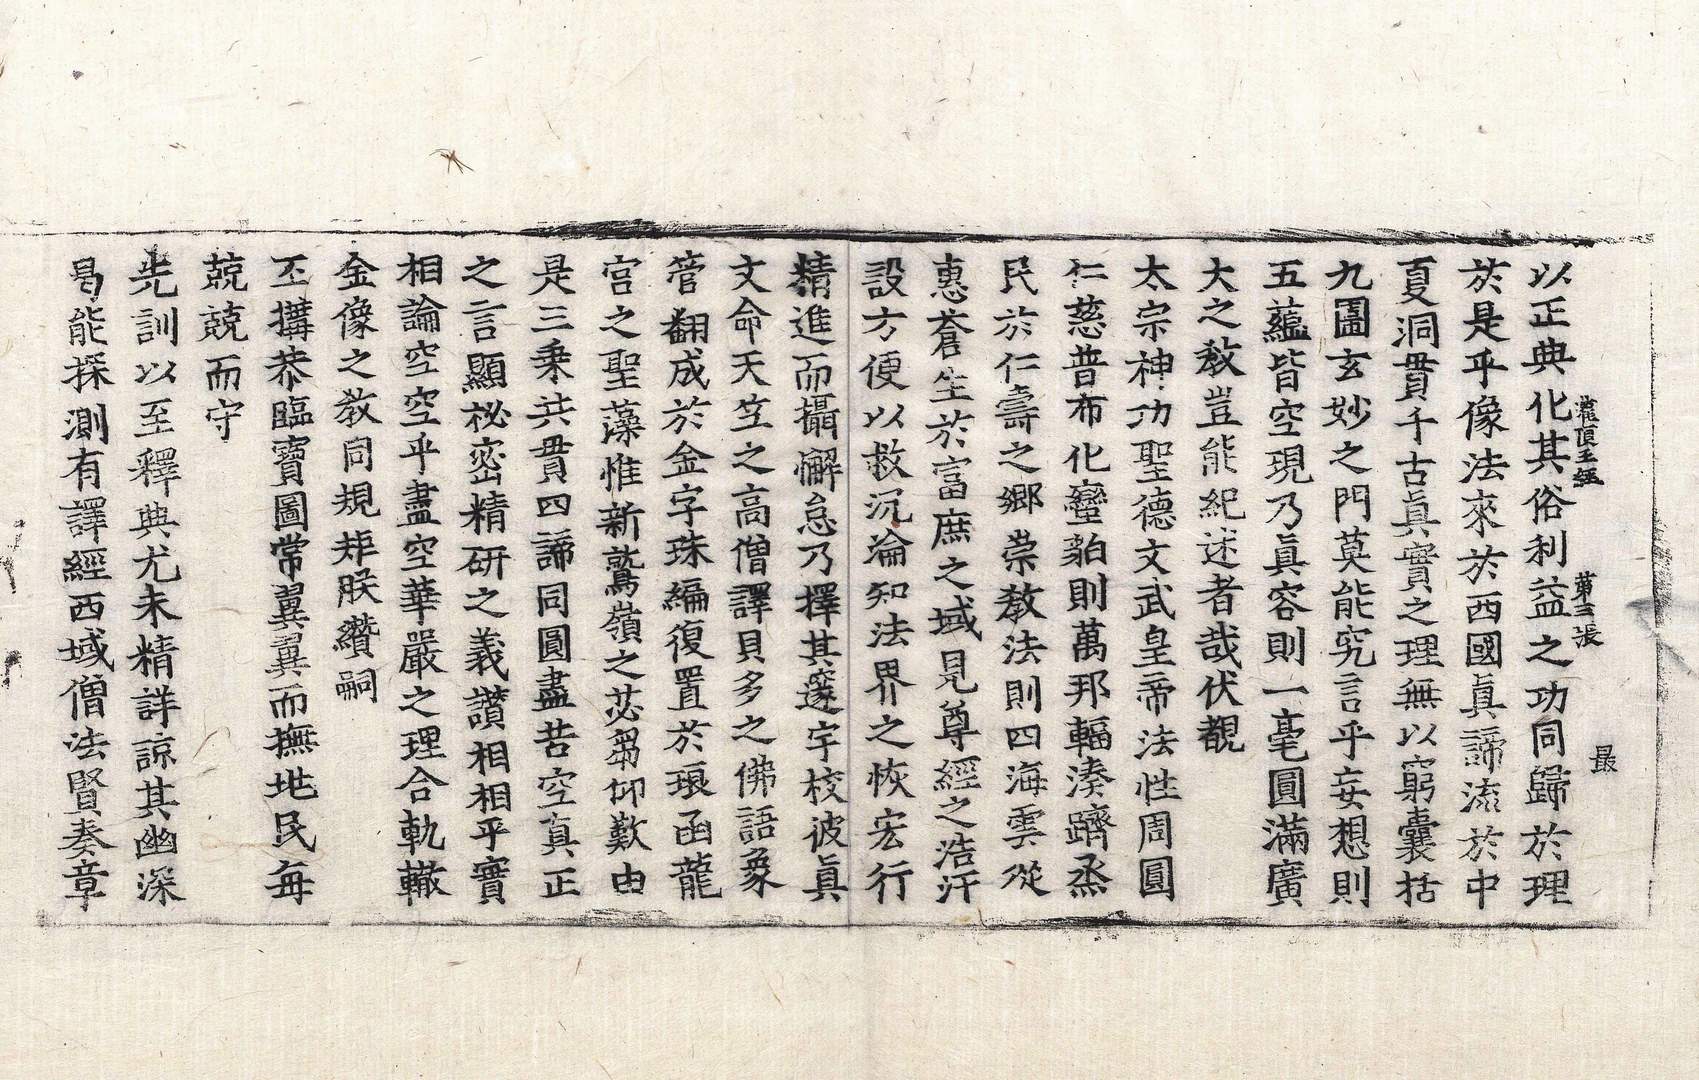 以正典化其俗利益之功同歸於理
於是乎像法來於西國眞諦流於中
夏洞貫千古眞實之理無以窮囊括
九圍玄妙之門莫能究言乎妄想則
五蘊皆空現乃眞容則一毫圓滿廣
大之教豈能紀述者哉伏覩
太宗神功聖德文武皇帝法性周圓
仁慈普布化蠻貊則萬邦輻湊躋烝
民於仁壽之鄉崇教法則四海雲從
惠蒼生於富庶之域見尊經之浩汗
設方便以救沉淪知法界之恢宏行
精進而攝懈怠乃擇其邃宇校彼眞
文命天竺之高僧譯貝多之佛語象
管翻成於金字珠編復置於琅函龍
宮之聖藻惟新鷲嶺之苾蒭仰歎由
是三乘共貫四諦同圓盡苦空真正
之言顯祕密精研之義讚相相乎實
相論空空乎盡空華嚴之理合軌轍
金像之教同規矩朕纘嗣
丕搆恭臨寶圖常翼翼而撫地民每
兢兢而守
先訓以至釋典尤未精詳諒其幽深
曷能探測有譯經西域僧法賢奏章
灌頂王經 第三張 最